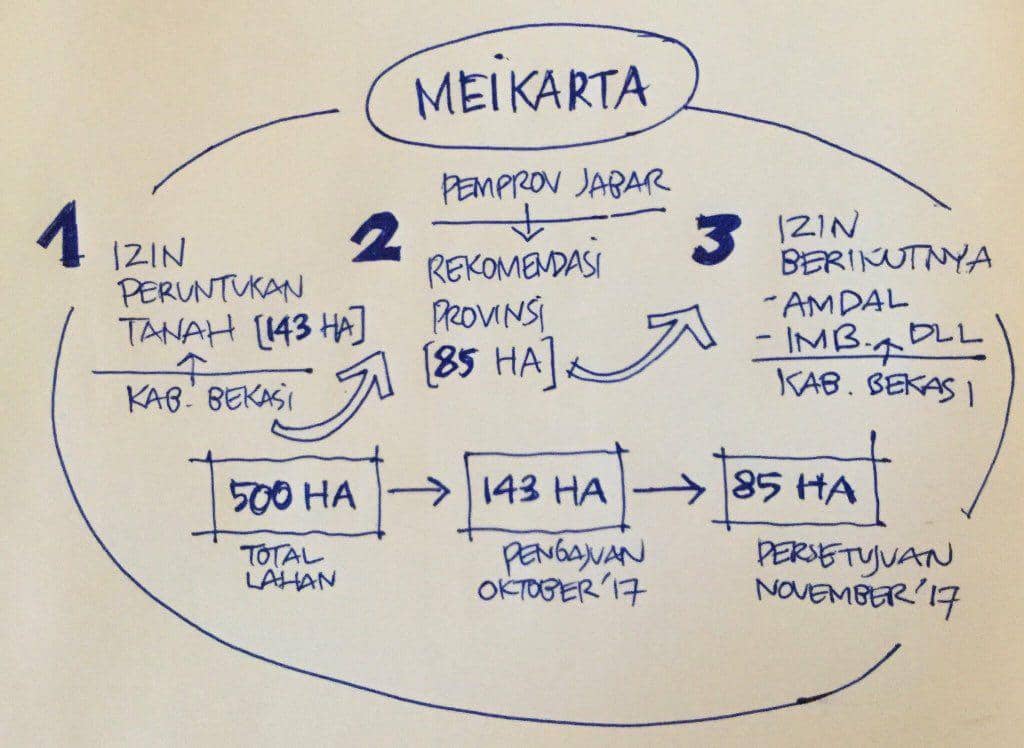 MEIKARTA
1
IZIN
PERUNTUKAN
TANAH [143 HA]
KAB. BEKASI
PEMPROV JABAR
2
REKOMENDASI
PROVINSI
[85 HA]
3
IZIN
BERIKUTNYA
- AMDAL
- IMB. DLL
KAB. BEKASI
500 HA
TOTAL
LAHAN
143 HA
PENGAJUAN
OKTOBER '17
85 HA
PERSETUJUAN
NOVEMBER '17